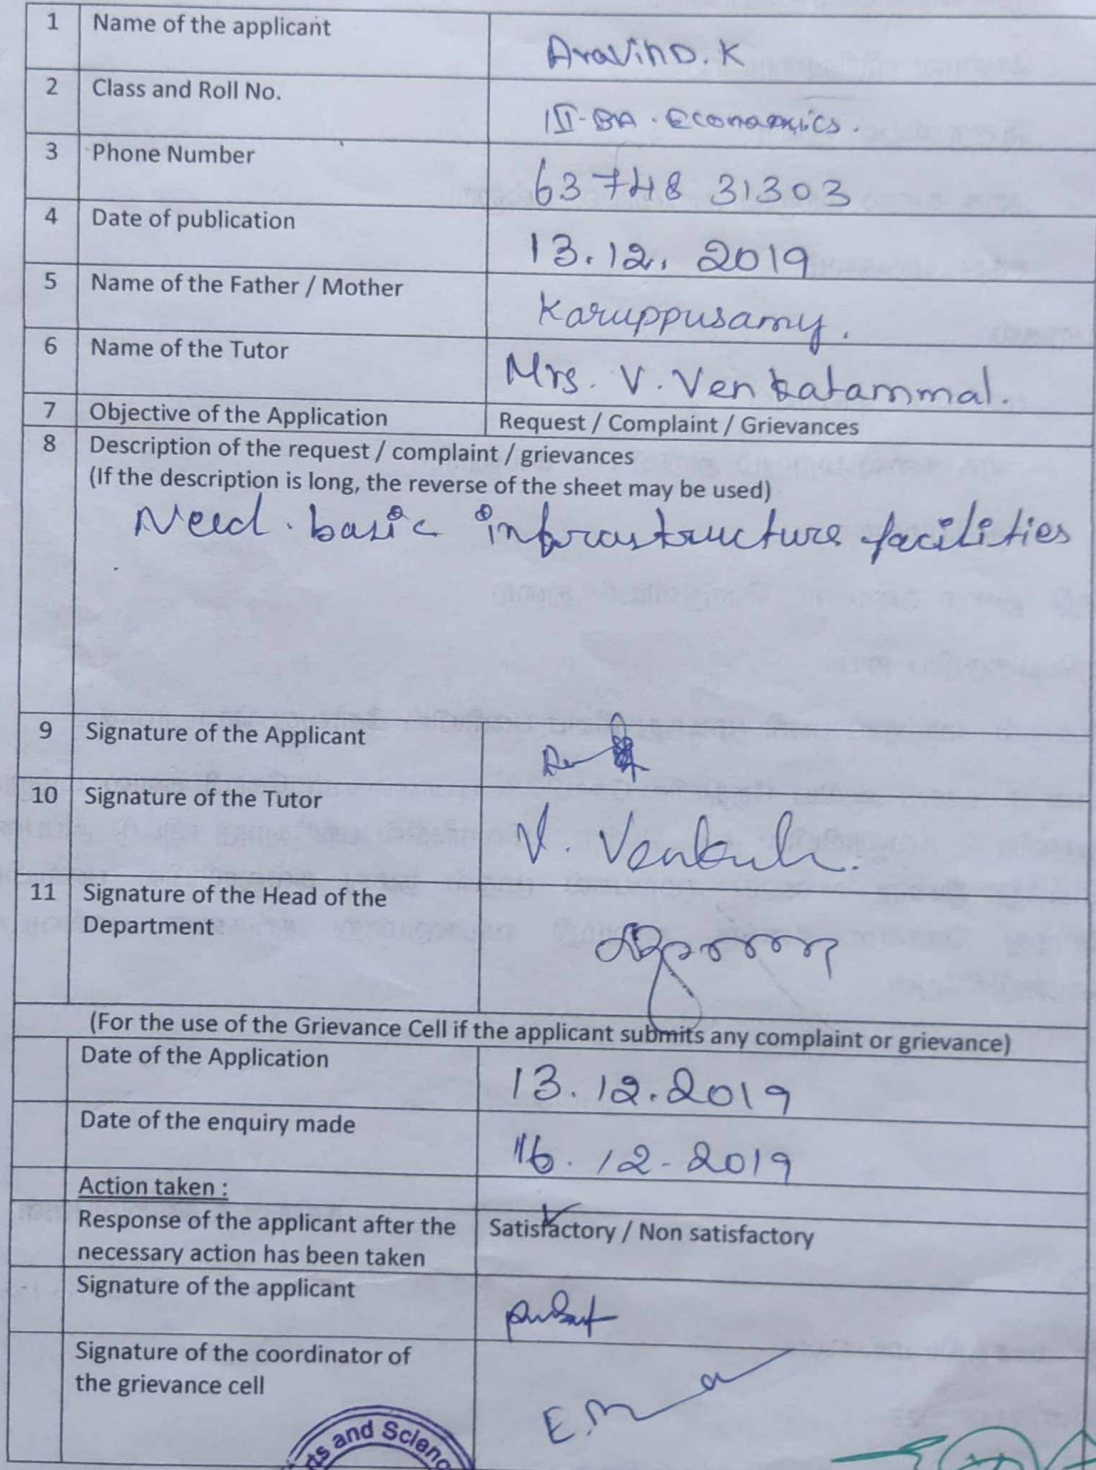 1 Name of the applicant AravinD. K
2 Class and Roll No. III-BA. Economics.
3 Phone Number 63748 31303
4 Date of publication 13.12.2019
5 Name of the Father / Mother Karuppusamy.
6 Name of the Tutor Mrs. V. Venkatammal.
7 Objective of the Application Request / Complaint / Grievances
8 Description of the request / complaint / grievances
(If the description is long, the reverse of the sheet may be used)
Need basic infrastructure facilities
9 Signature of the Applicant
10 Signature of the Tutor V.
11 Signature of the Head of the
Department
(For the use of the Grievance Cell if the applicant submits any complaint or grievance)
Date of the Application 13.12.2019
Date of the enquiry made 16.12-2019
Action taken :
Response of the applicant after the Satisfactory / Non satisfactory
necessary action has been taken
Signature of the applicant
Signature of the coordinator of
the grievance cell
and